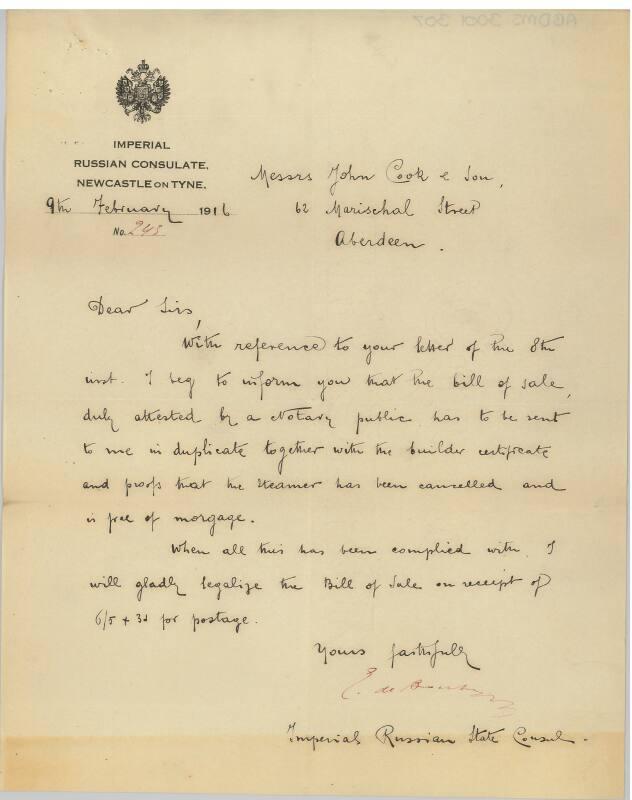 IMPERIAL
RUSSIAN CONSULATE.
NEWCASTLE ON TYNE.
9th February 1916
No. 243
Messrs John Cook & Son,
62 Marischal Street
Aberdeen.
Dear Sirs,
With reference to your letter of the 8th
inst. I beg to inform you that the bill of sale,
duly attested by a Notary public has to be sent
to me in duplicate together with the builder certificate
and proofs that the steamer has been cancelled and
is free of morgage.
When all this has been complied with, I
will gladly legalize the Bill of Sale on receipt of
6/5 + 3d for postage.
Yours faithfully
E. de
Imperial Russian State Consul.